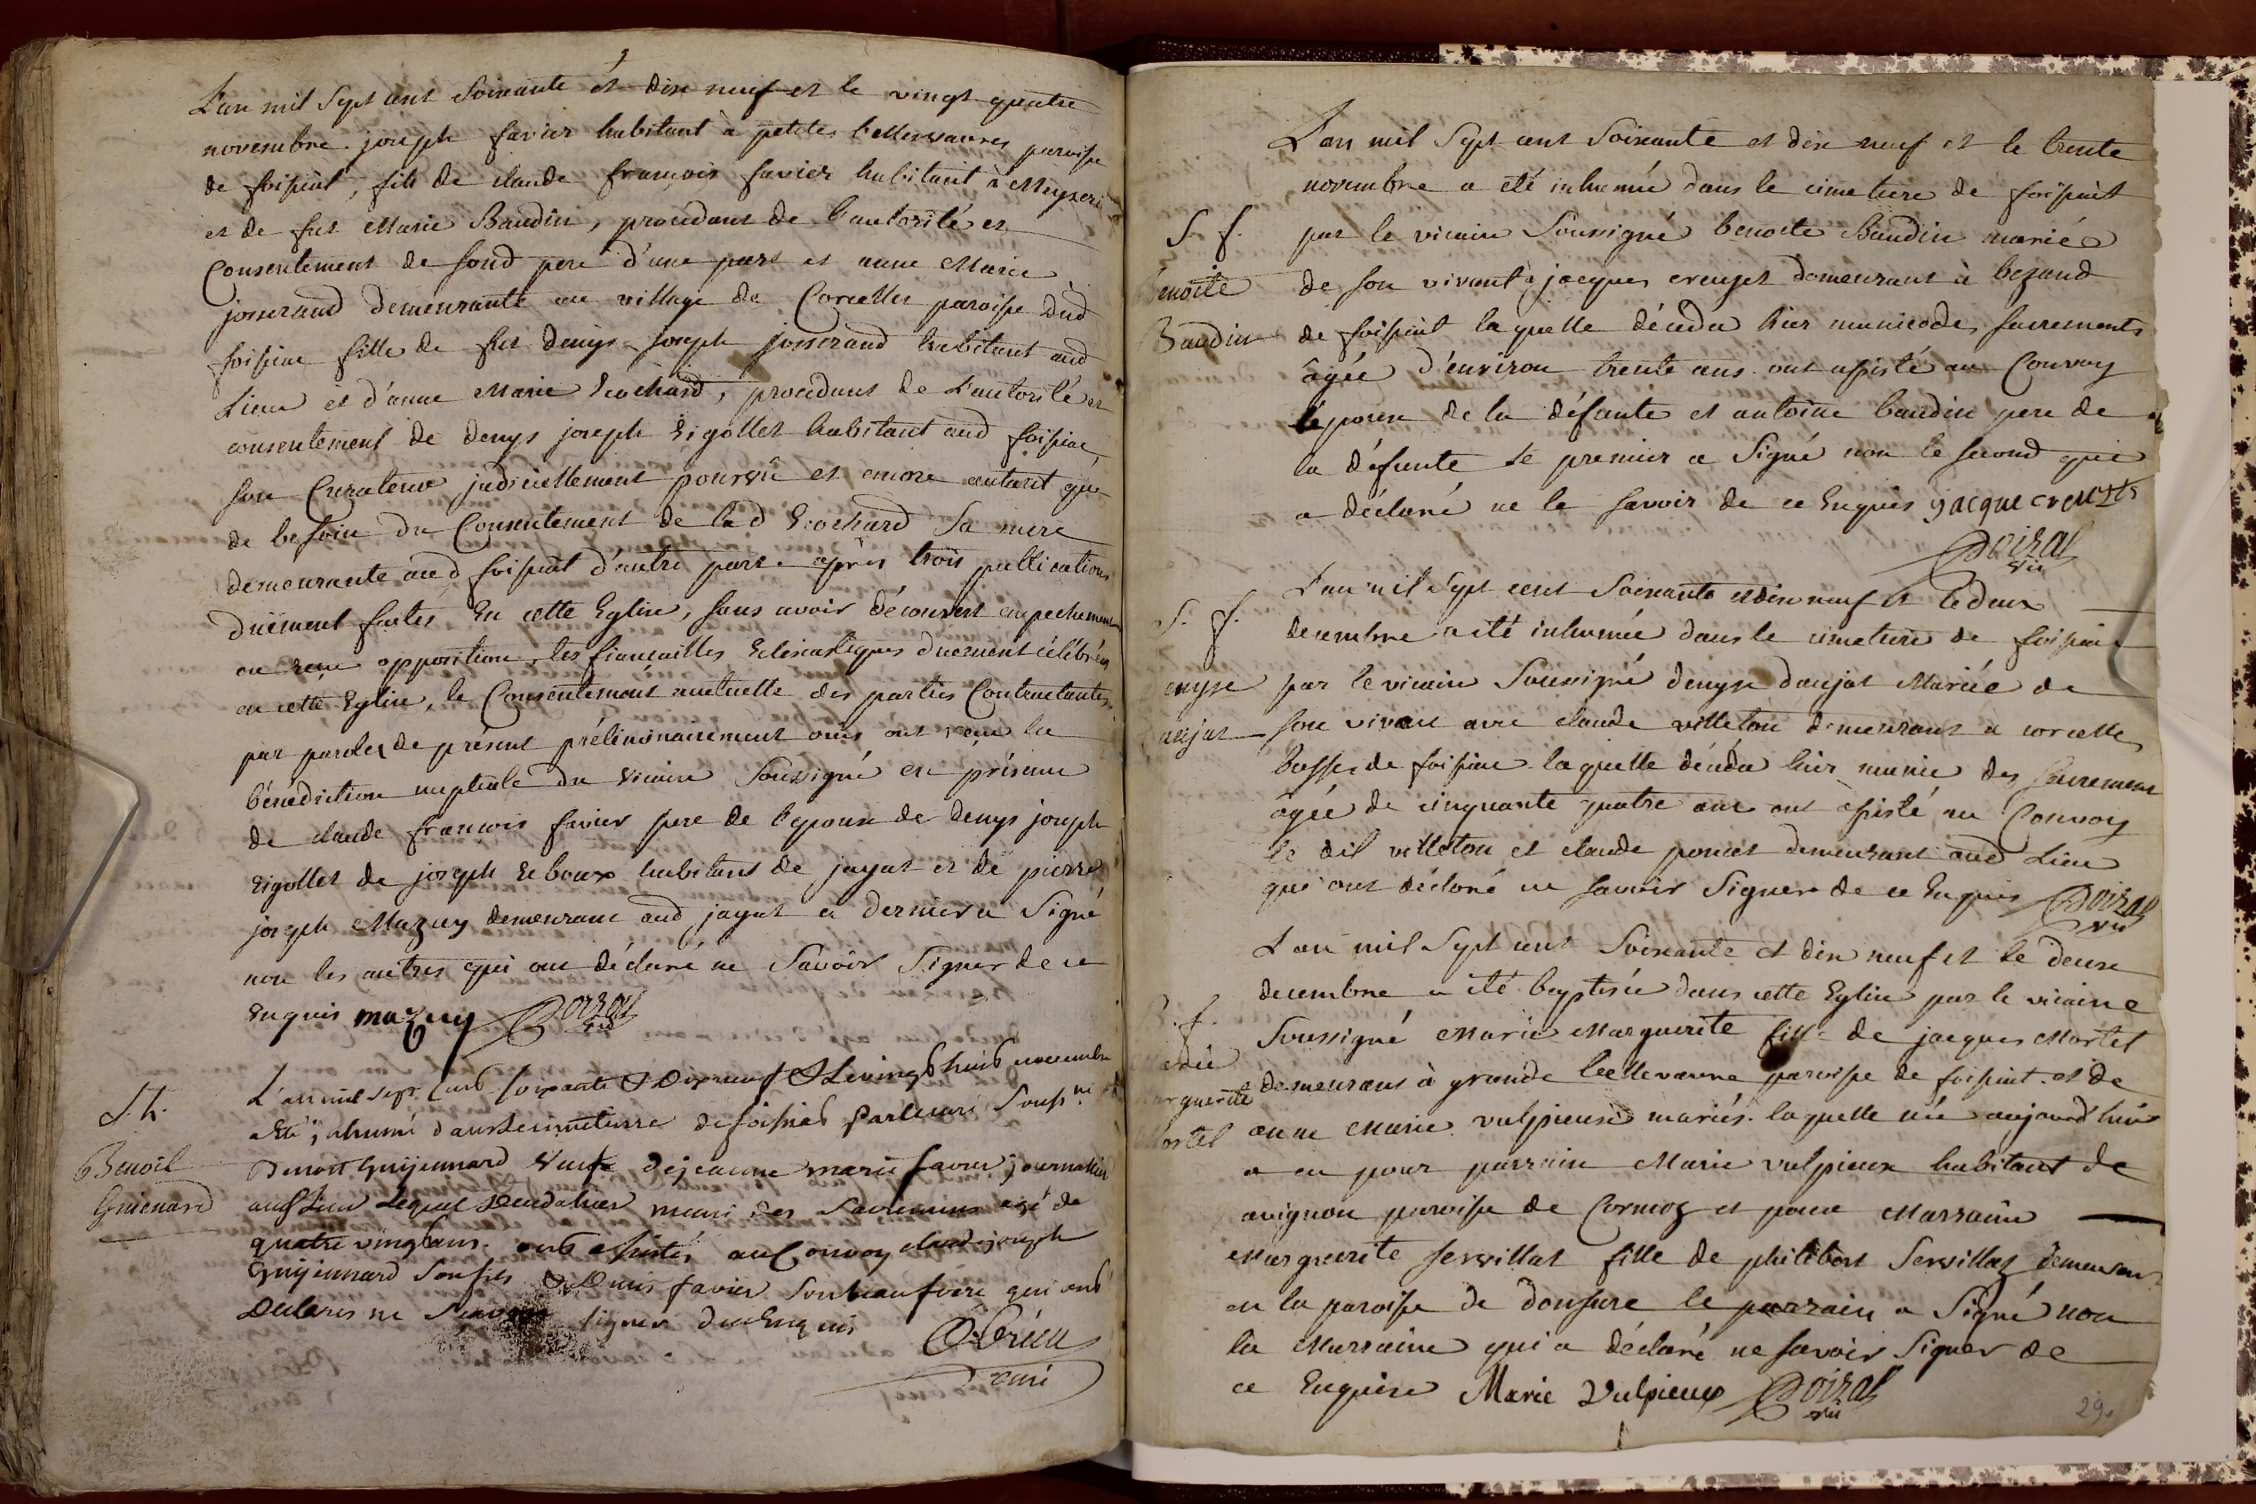 L'an mil Sept cent Soixante et dix neuf et le vingt quatre
novembre. joseph favier habitant à petites bellevavres paroisse
de foissiat, fils de claude françois favier habitant à Meyzeri
et de fut Marie Baudin, procedant de l'autorité et
Consentement de sond pere d'une part et anne Marie
josserand demeurante au village de Corcelles paroisse dud
foissiat fille de fut denys joseph josserand habitant aud
Lieu et d'anne Marie Ecochard, procedant de L'autorité et
consentement de denys joseph Rigollet habitant aud foissiat
son Curateur judiciellement pourvû et encore autant que
de besoin du Consentement de lad Ecochard Sa mere
demeurante aud foissiat d'autre part. après trois publications
duëment faites En cette Eglise, sans avoir découvert empechement
ou reçu opposition, les fiancailles Eclesiastiques duement célébrées
en cette Eglise, le Consentement mutuelle des parties Contractantes
par paroles de présent préliminairement ouis ont reçu la
bénédiction nuptiale du vicaire Soussigné en présence
de claude françois favier pere de l'epoux de denys joseph
Rigollet de joseph Reboux habitant de jayat et de pierre
joseph Mazuy demeurant aud jayat ce dernier a Signé
non les autres qui ont déclaré ne Savoir Signer de ce
Enquis mazuy Doizat
vic
S. h.
Benoit
Guienard
L'an mil sept cent soixante & Dix neuf & Le vingt huit novembre
a Eté inhumé dans Le cimetierre de foissiat par le curé Souss.né
Benoit Guijennard veuf de jeanne marie favier journalier
aud Lieu Lequel Décéda hier muni des Sacremens agé de
quatre vingt ans. ont assistés au Convoy claude joseph
Guijennard son fils & Denis favier son beaufrere qui ont
Déclarés ne Scavoir signer de ce Enquis
curé
S. f.
Benoite
Baudin
L'an mil Sept cent Soixante et dix neuf et le trente
novembre a été inhumée dans le cimetiere de foissiat
par le vicaire Soussigné benoite Baudin mariée
de son vivant à jacques creuzet demeurant à bezand
de foissiat laquelle décéda hier munie des sacrements
âgée d'environ trente ans. ont assisté au Convoy
l'epoux de la défunte et antoine baudin pere de
la défunte le premier a Signé non le second qui
a déclaré ne le savoir de ce Enquis jacque creuzet
Doizat
vic
S. f.
denyse
danjat
L'an mil Sept cent Soixante et dix neuf et le deux
decembre a été inhumée dans le cimetiere de foissiat
par le vicaire Soussigné denyse danjat Mariée de
son vivant avec claude villeton demeurant à corcelle
basses de foissiat laquelle décéda hier munie des sacrement
âgée de cinquante quatre ans ont assisté au Convoy
le dit villeton et claude poncet demeurant aud Lieu
qui ont déclaré ne savoir Signer de ce Enquis Doizat
vic
B. f.
Marie
Marguerite
Mortel
L'an mil Sept cent Soixante et dix neuf et le deux
decembre a été baptisée dans cette Eglise par le vicaire
Soussigné Marie Marguerite fille de jacques Mortel
demeurant à grande bellevavre paroisse de foissiat et de
anne Marie vulpieux mariés. laquelle née aujourd'hui
a eu pour parrain Marie vulpieux habitant de
avignon paroisse de Cormoz et pour Marraine
Marguerite servillat fille de philibert Servillat demeurant
en la paroisse de donsure le parrain a Signé non
la Marraine qui a déclaré ne savoir Signer de
ce Enquise Marie Vulpieux Doizat
vic
29.